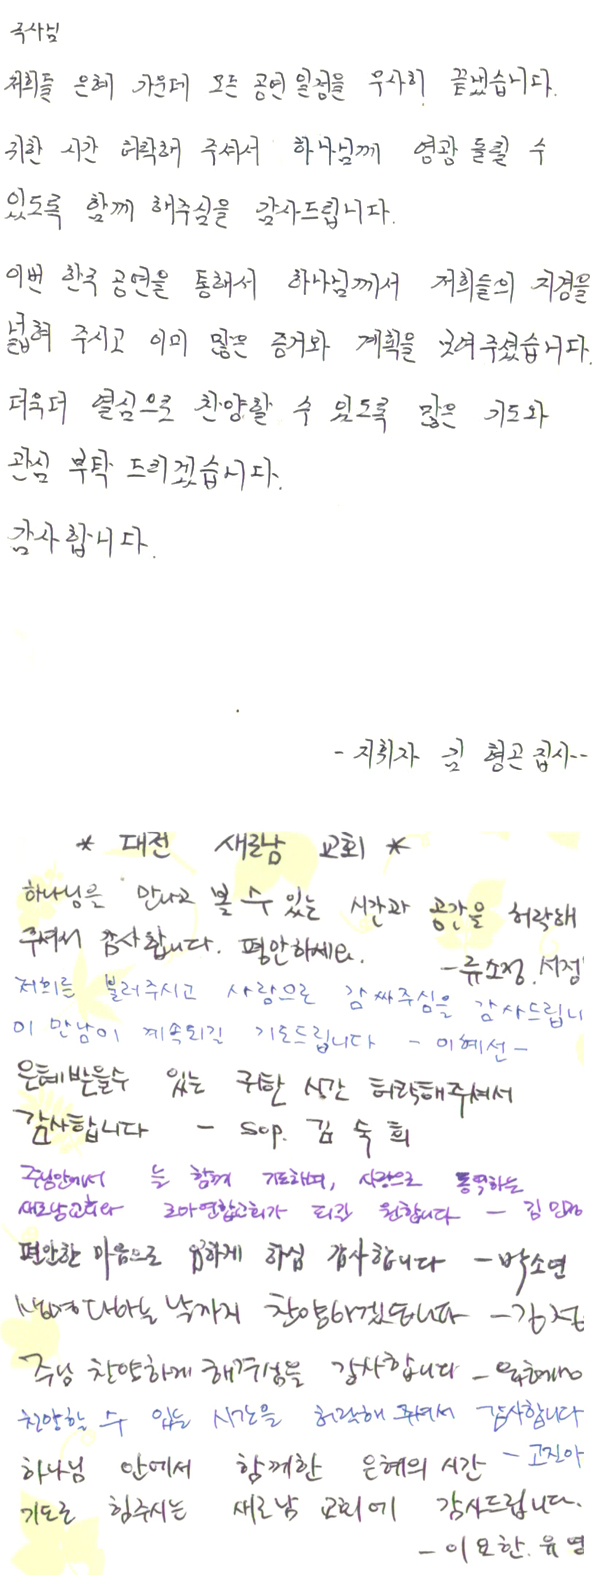 목사님
저희들 은혜 가운데 모든 공연 일정을 무사히 끝냈습니다.
귀한 시간 허락해 주셔서 하나님께 영광 돌릴 수
있도록 함께 해주심을 감사드립니다.
이번 한국 공연을 통해서 하나님께서 저희들의 지경을
넓혀 주시고 이미 많은 증거와 계획을 보여주셨습니다.
더욱더 열심으로 찬양할 수 있도록 많은 기도와
관심 부탁 드리겠습니다.
감사합니다.
- 지휘자 김 형곤 집사--
* 대전 새로남 교회 *
하나님을 만나고 볼 수 있는 시간과 공간을 허락해
주셔서 감사합니다. 평안하세요.
- 류소정, 서정
저희를 불러주시고 사랑으로 감싸주심을 감사드립니
이 만남이 계속되길 기도드립니다 - 이혜선 -
은혜받을수 있는 귀한 시간 허락해주셔서
감사합니다 - sop. 김 숙 희
주님안에서 늘 함께 기도하며, 사랑으로 동역하는
새로남교회와 로마연합교회가 되길 원합니다 - 김
편안한 마음으로 하게 하심 감사합니다 - 박소연
생명다하는 날까지 찬양하겠습니다 - 김
주님 찬양하게 해주심을 감사합니다 -
찬양할 수 있는 시간을 허락해 주셔서 감사합니다
- 고진아
하나님 안에서 함께한 은혜의 시간
기도로 힘주시는 새로남 교회에 감사드립니다.
- 이요한. 유 영